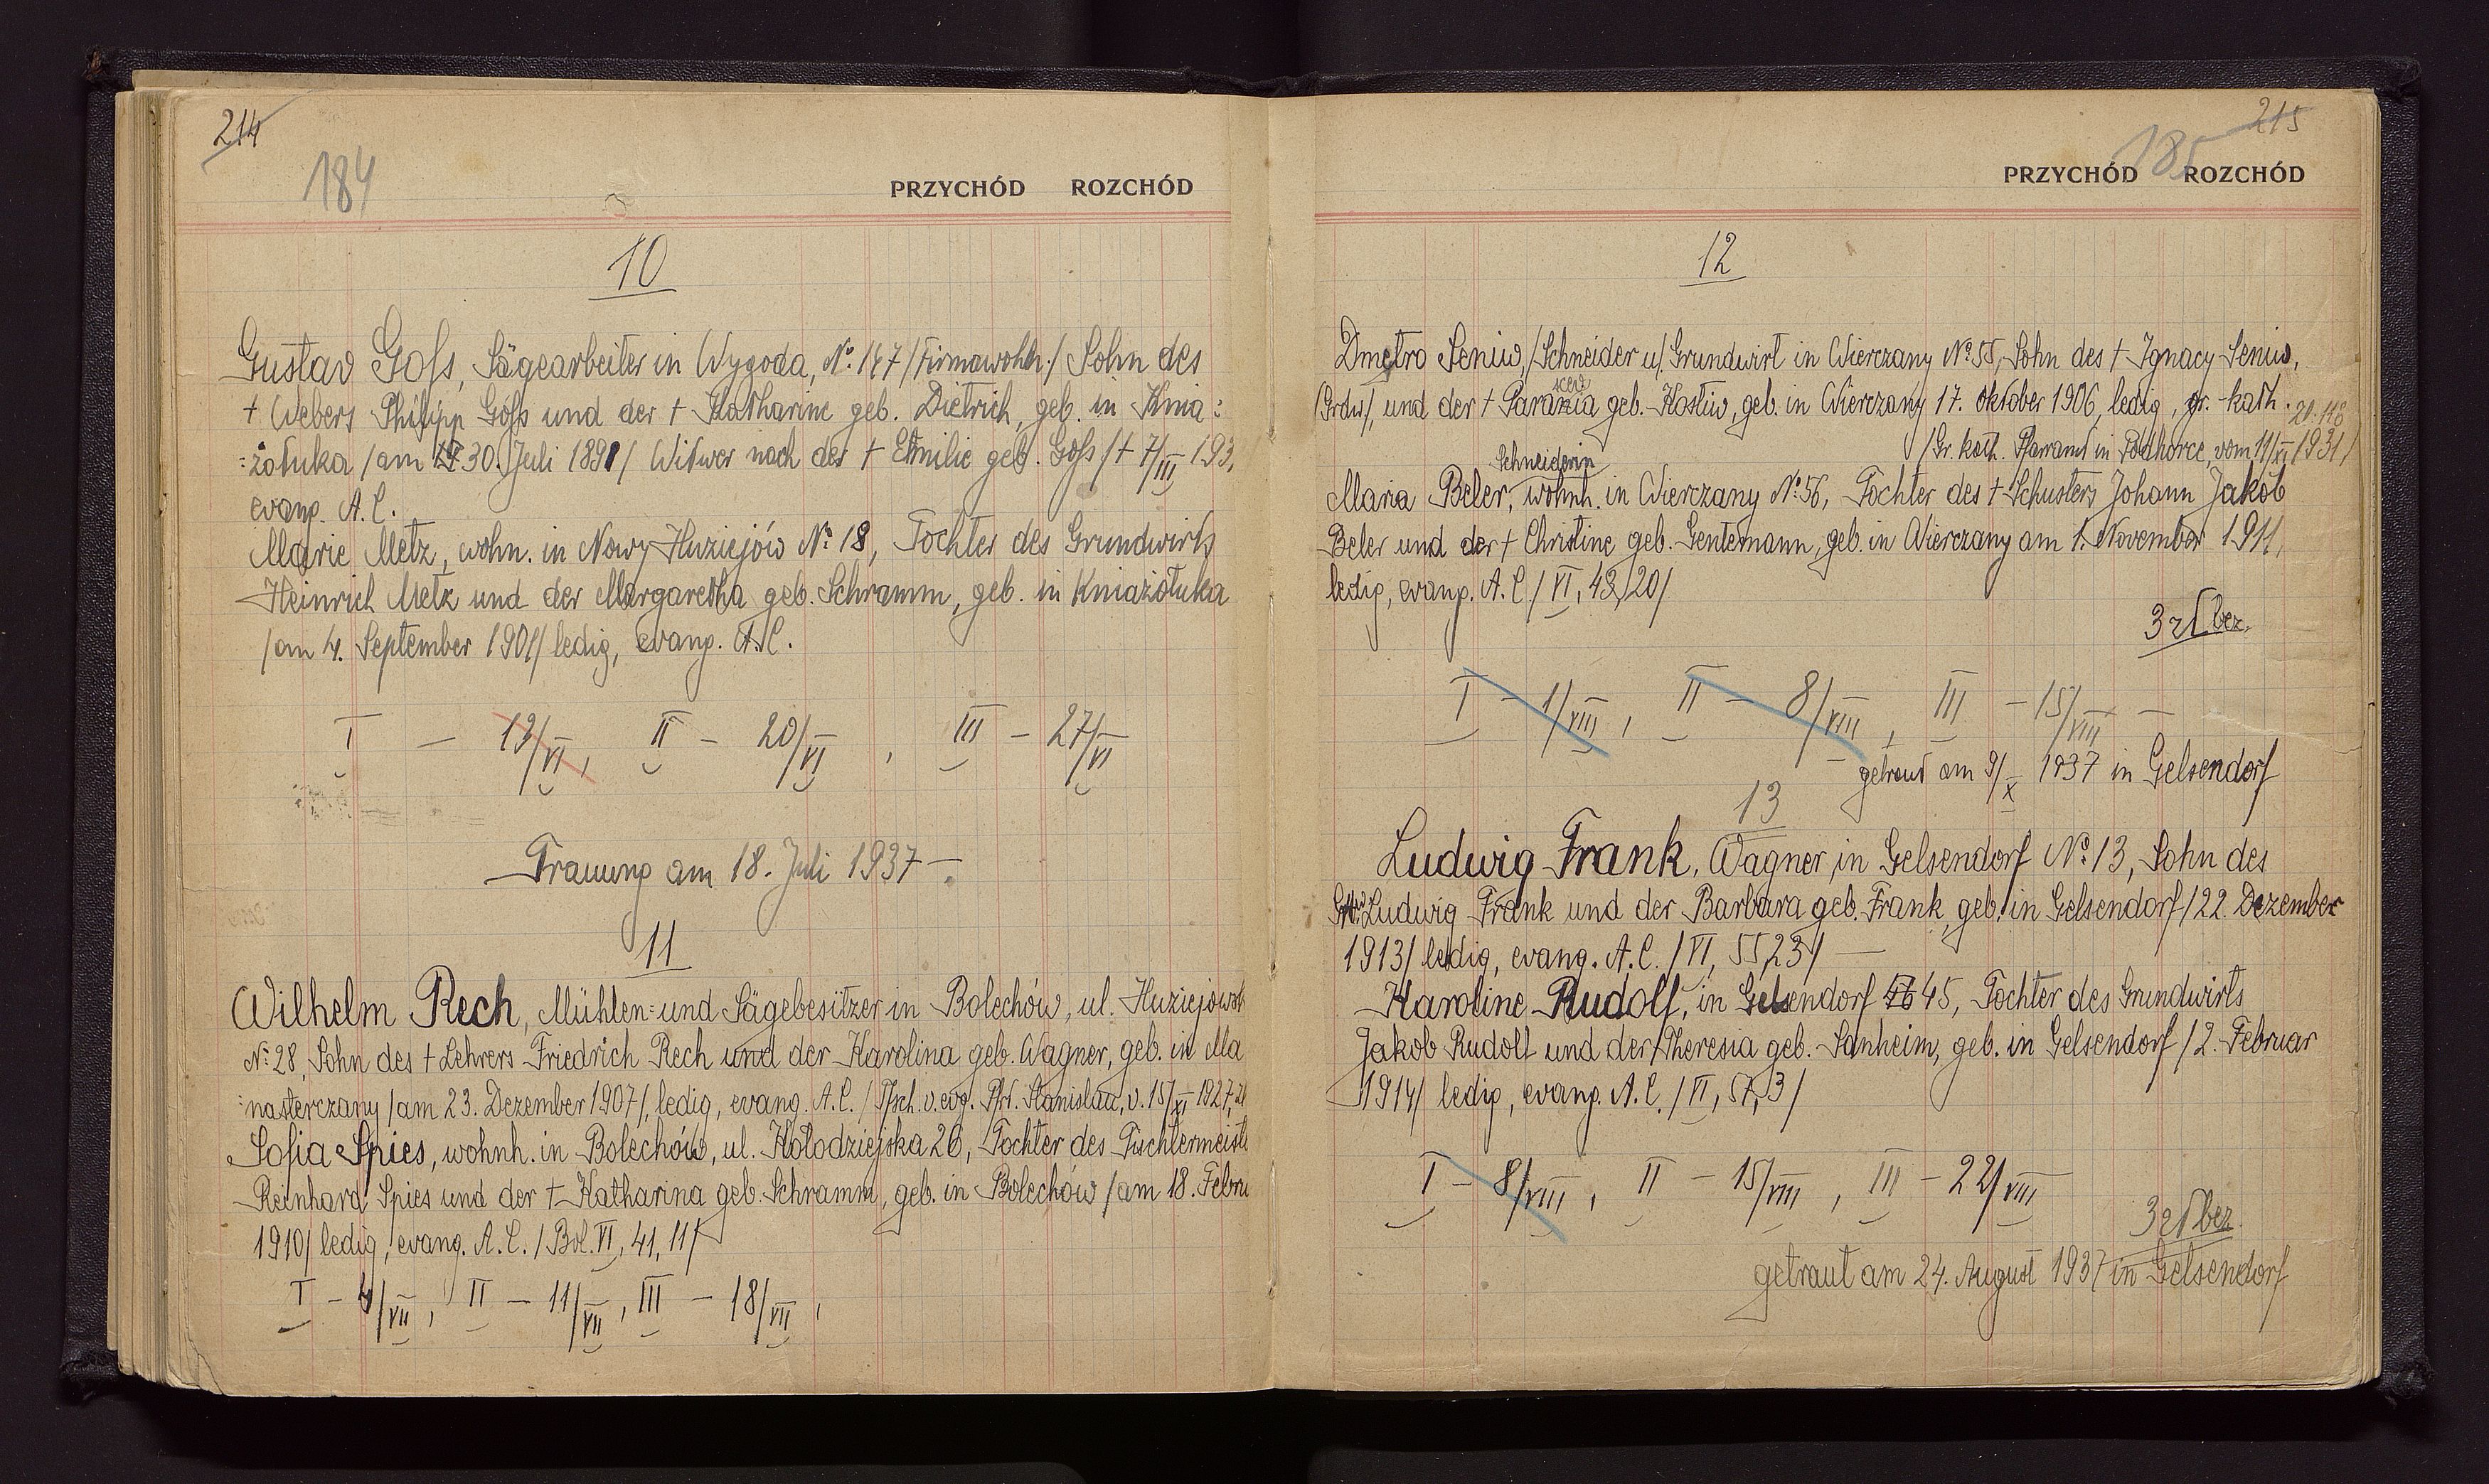 214
184
PRZYCHÓD ROZCHÓD
10
Gustav Goss, Sägearbeiter in Wygoda, No. 147 /Firmawohn./ Sohn des
† Webers Philipp Göss und der † Katharine geb. Dietrich, geb. in Knia=
=żołuka /am 30. Juli 1891/ Witwer nach der † Emilie geb. Goss /† 7/III 193
evang. A. C.
Marie Metz, wohn. in Nowy Huziejów No 18, Tochter des Grundwirts
Heinrich Metz und der Margaretha geb. Schramm, geb. in Kniażołuka
/am 4. September 1901/ ledig, evang. A.C.
I — 13/VI, II — 20/VI, III — 27/VI
Trauung am 18. Juli 1937 —.
11
Wilhelm Rech, Mühlen= und Sägebesitzer in Bolechów, ul. Huziejowsk
No 28, Sohn des † Lehrers Friedrich Rech und der Karolina geb. Wagner, geb. in Ma
=nasterczany /am 23. Dezember 1907/, ledig, evang. A. C. / Tfsch. v. evg. Pfr. Stanislau, v. 15/XI 1927,
Sofia Spies, wohnh. in Bolechów, ul. Kołodziejska 26, Tochter des Tischlermeist
Reinhard Spies und der † Katharina geb. Schramm, geb. in Bolechów /am 18. Febru
1910/ ledig, evang. A. C. / Bol. VI, 41, 11/
I — 4/VII, II — 11/VII, III — 18/VII,
215
185
PRZYCHÓD ROZCHÓD
12
Dmetro Seniw, /Schneider u/ Grundwirt in Wierczany No 55, Sohn des † Ignacy Seniw,
/Grdw/, und der † Paraxia geb. Kostiw, geb. in Wierczany 17. Oktober 1906, ledig, gr.-kath.
/Gr. kath. Pfarramt in Podhorce, vom 11/XI 1931/
Schneiderin
Maria Beler, wohnh. in Wierczany No 56, Tochter des † Schusters Johann Jakob
Beler und der † Christine geb. Gentemann, geb. in Wierczany am 1. November 1911,
ledig, evang. A. C / VI, 43, 20/
3 zł bez.
I — 1/VIII, II — 8/VIII, III — 15/VIII —
getraut am 9/X 1937 in Gelsendorf
13
Ludwig Frank, Wagner in Gelsendorf No 13, Sohn des
Grdw. Ludwig Frank und der Barbara geb. Frank, geb. in Gelsendorf /22. Dezember
1913/ ledig, evang. A. C. / VI, 55, 23/ —
Karoline Rudolf, in Gelsendorf 45, Tochter des Grundwirts
Jakob Rudolf und der Theresia geb. Sanheim, geb. in Gelsendorf /2. Februar
1914/ ledig, evang. A. C. / VI, 57, 3/
I — 8/VIII, II — 15/VIII, III — 22/VIII
3 zł bez.
getraut am 24. August 1937 in Gelsendorf